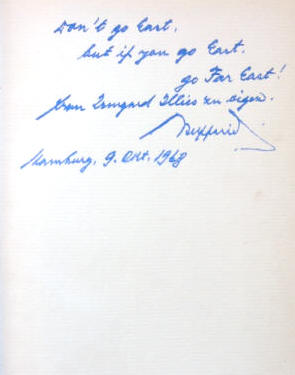 Don't go East,
but if you go East,
go Far East!
Frau Irmgard Illies zu eigen.
Hamburg, 9. Okt. 1968